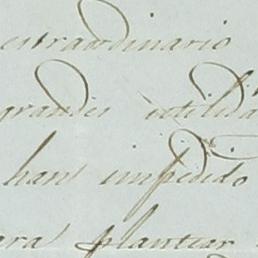 estraordinario
grandes utilida
han impedido
ara plantear